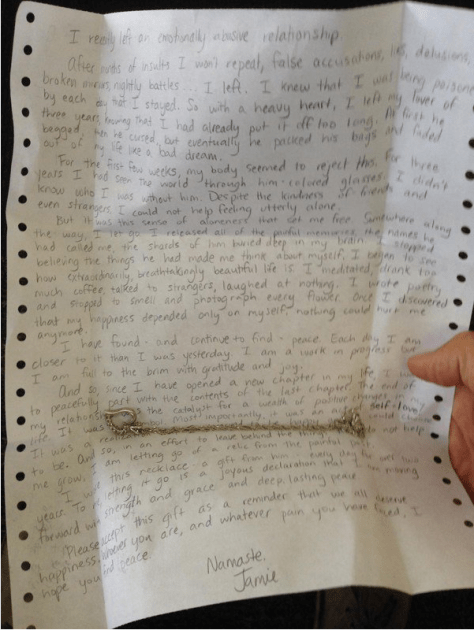 I recently left an emotionally abusive relationship.
After months of insults I won't repeat, false accusations, lies, delusions,
broken mirrors, nightly battles... I left. I knew that I was being poisoned
by each day that I stayed. So with a heavy heart, I left my lover of
three years, knowing that I had already put it off too long. At first he
begged, then he cursed, but eventually he packed his bags and faded
out of my life like a bad dream.
For the first few weeks, my body seemed to reject this. For three
years I had seen the world through him-colored glasses. I didn't
know who I was without him. Despite the kindness of friends and
even strangers I could not help feeling utterly alone.
But it was this sense of aloneness that set me free. Somewhere along
the way, I let go. I released all of the painful memories, the names he
had called me, the shards of him buried deep in my brain. I stopped
believing the things he had made me think about myself. I began to see
how extraordinarily, breathtakingly beautiful life is. I meditated, drank too
much coffee, talked to strangers, laughed at nothing. I wrote poetry
and stopped to smell and photograph every flower. Once I discovered
that my happiness depended only on myself, nothing could hurt me
anymore.
I have found - and continue to find - peace. Each day I am
closer to it than I was yesterday. I am a work in progress but
I am full to the brim with gratitude and joy.
And so, since I have opened a new chapter in my life, I
to peacefully part with the contents of the last chapter. The end of
my relationship the catalyst for a wealth of positive changes in my
life. It was most importantly, it was an self-love.
It was a
to be. And so, in an effort to leave behind the things do not help
me grow, I am letting go of a relic from the painful
I wore this necklace, a gift from him, every day for over two
years. To letting it go is a joyous declaration that I am moving
forward with strength and grace and deep, lasting peace.
Please accept this gift as a reminder that we all deserve
happiness. Whoever you are, and whatever pain you have faced, I
hope you find peace.
Namaste.
Jamie